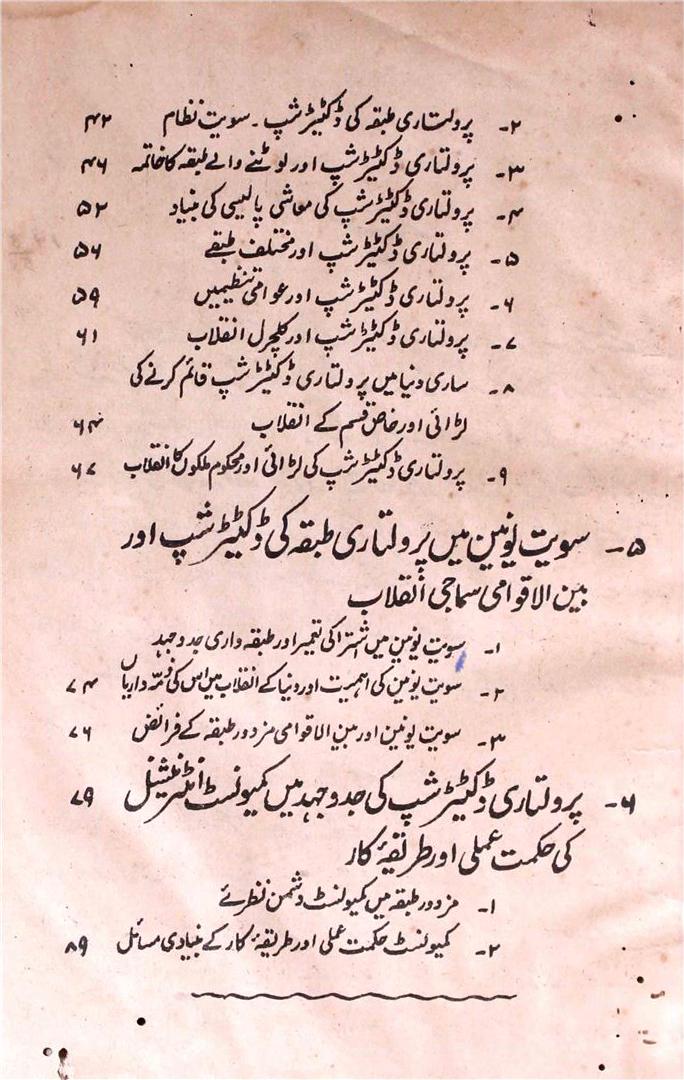 ۲۔ پرولتاری طبقہ کی ڈکٹیٹرشپ۔ سویت نظام ۴۲
۳۔ پرولتاری ڈکٹیٹرشپ اور لوٹنے والے طبقہ کا خاتمہ ۴۶
۴۔ پرولتاری ڈکٹیٹرشپ کی معاشی پالیسی کی بنیاد ۵۲
۵۔ پرولتاری ڈکٹیٹرشپ اور مختلف طبقے ۵۶
۶۔ پرولتاری ڈکٹیٹرشپ اور عوامی تنظیمیں ۵۹
۷۔ پرولتاری ڈکٹیٹرشپ اور کلچرل انقلاب ۶۱
۸۔ ساری دنیا میں پرولتاری ڈکٹیٹرشپ قائم کرنے کی
لڑائی اور خاص قسم کے انقلاب ۶۴
۹۔ پرولتاری ڈکٹیٹرشپ کی لڑائی اور محکوم ملکوں کا انقلاب ۶۷
۵۔ سویت یونین میں پرولتاری طبقہ کی ڈکٹیٹرشپ اور
بین الاقوامی سماجی انقلاب
۱۔ سویت یونین میں اشتراکی تعمیر اور طبقہ واری جدوجہد
۲۔ سویت یونین کی اہمیت اور دنیا کے انقلاب میں اس کی ذمہ داریاں ۷۴
۳۔ سویت یونین اور بین الاقوامی مزدور طبقہ کے فرائض ۷۶
۶۔ پرولتاری ڈکٹیٹرشپ کی جدوجہد میں کمیونسٹ انٹرنیشنل ۷۹
کی حکمت عملی اور طریقۂ کار
۱۔ مزدور طبقہ میں کمیونسٹ دشمن نظرئے
۲۔ کمیونسٹ حکمت عملی اور طریقۂ کار کے بنیادی مسائل ۸۹